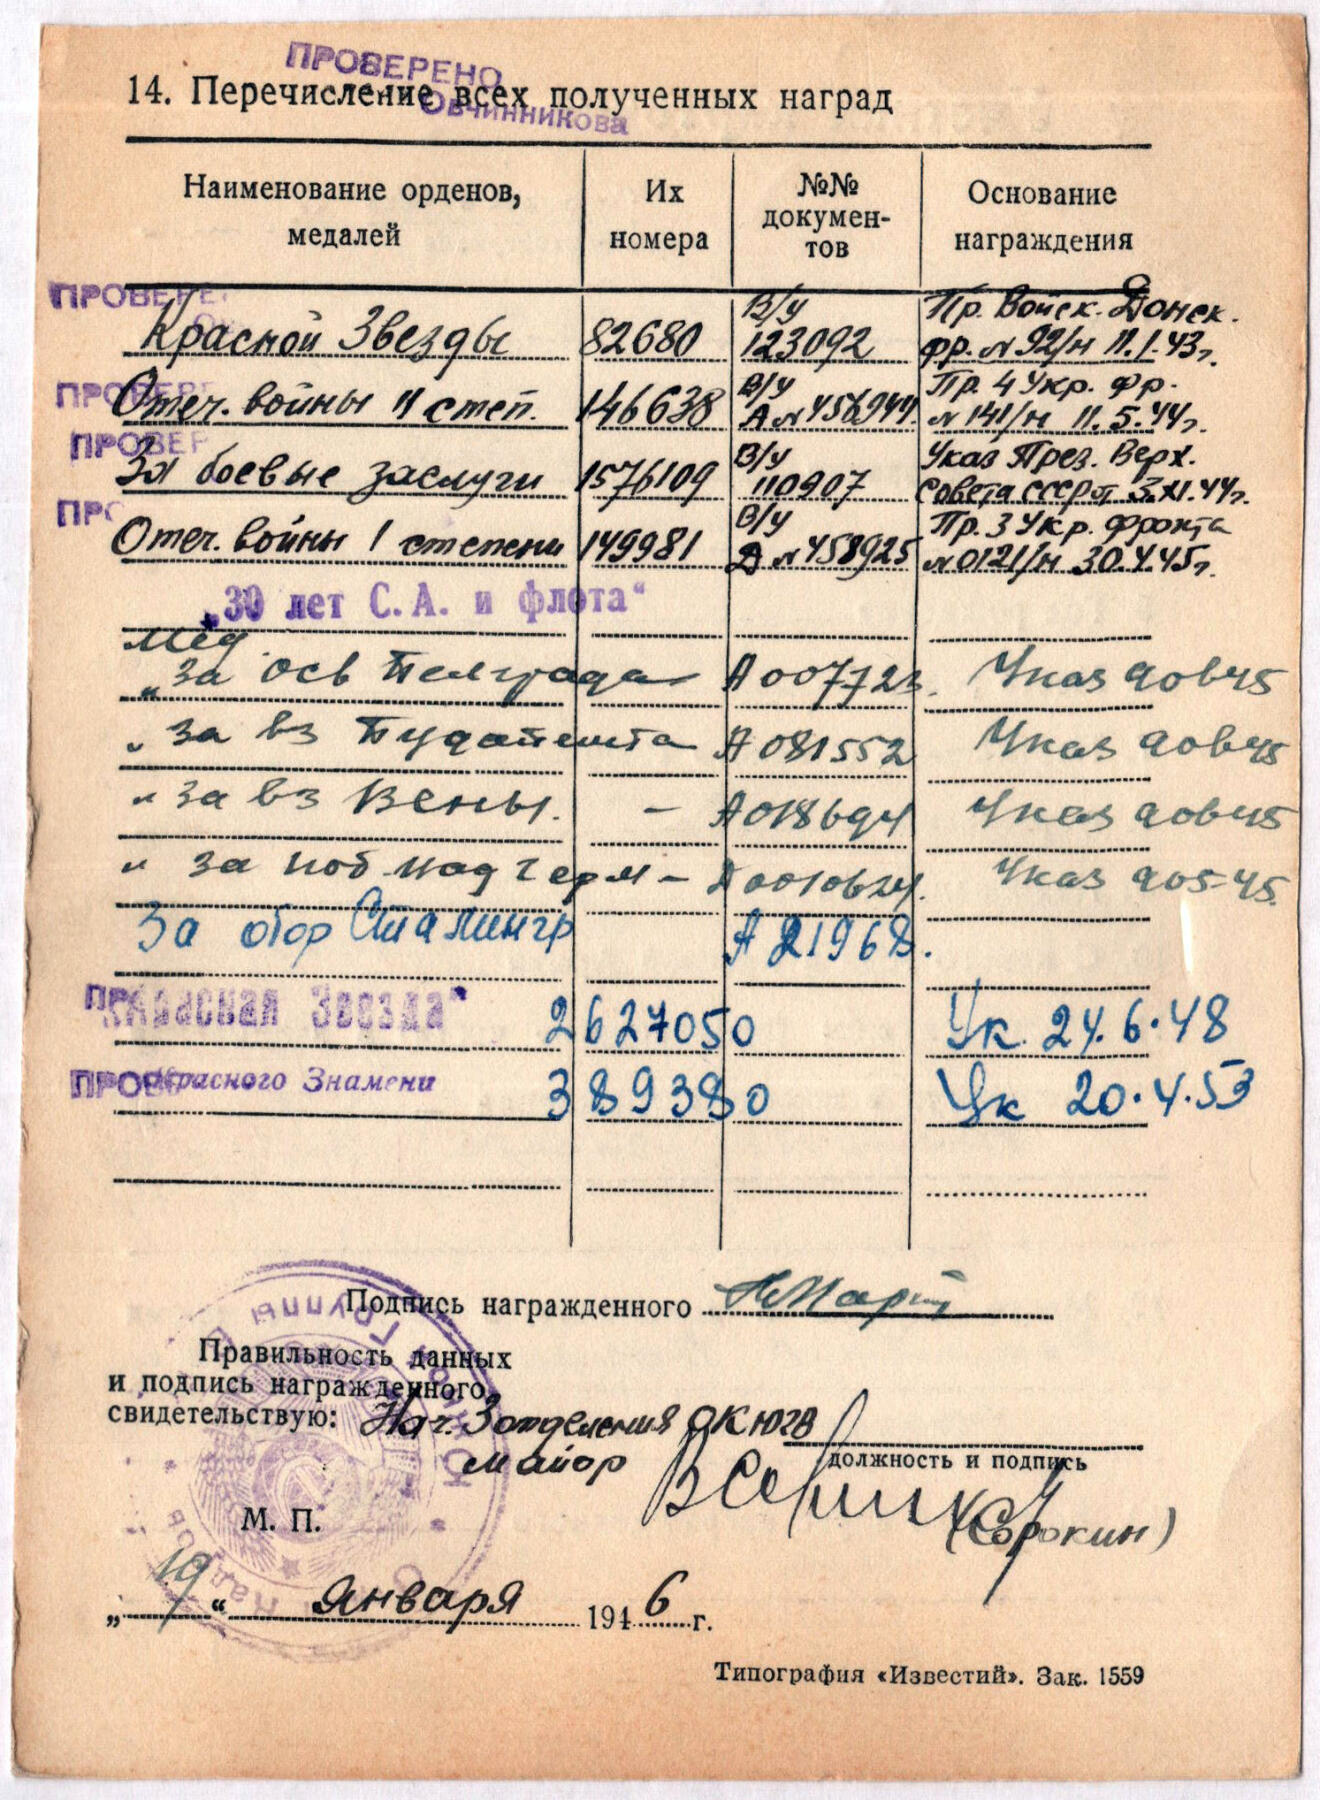 ПРОВЕРЕНО
Овчинникова
14. Перечисление всех полученных наград
Наименование орденов, медалей
Их номера
№№ докумен-
тов
Основание награждения
ПРОВЕРЕ
В/у Пр. Войск. Донск.
Красной Звезды 82680 123092 фр. № 92/н 11.1.43г.
ПРОВЕРЕ В/у Пр. 4 Укр. фр.
Отеч. войны II степ. 146638 А № 141/н 11.5.44г.
ПРОВЕР В/у Указ През. Верх.
За боевые заслуги 1576109 110907 Совета СССР от 3.XI.44г.
ПРО В/у Пр. 3 Укр. фронта
Отеч. войны I степени 149981 Д № 458925 № 0121/н 30.4.45г.
„30 лет С.А. и флота“
Мед
„за осв Белграда А 007723. Указ 90645
„ за вз Будапешта А 081552 Указ 90645
„ за вз Вены. – А 018694 Указ 90645
„ за поб над Герм – Указ 90545.
За обор Сталингр А 21968.
ПР „Красная Звезда“ 2627050 Ук. 24.6.48
ПРОВ Красного Знамени 3893880 Ук 20.4.53
Подпись награжденного
Правильность данных
и подпись награжденного
свидетельствую: Нач. 3 отделения ОК ЮГВ
майор
должность и подпись
(Сорокин)
М. П.
„19“ января 1946 г.
Типография «Известий». Зак. 1559